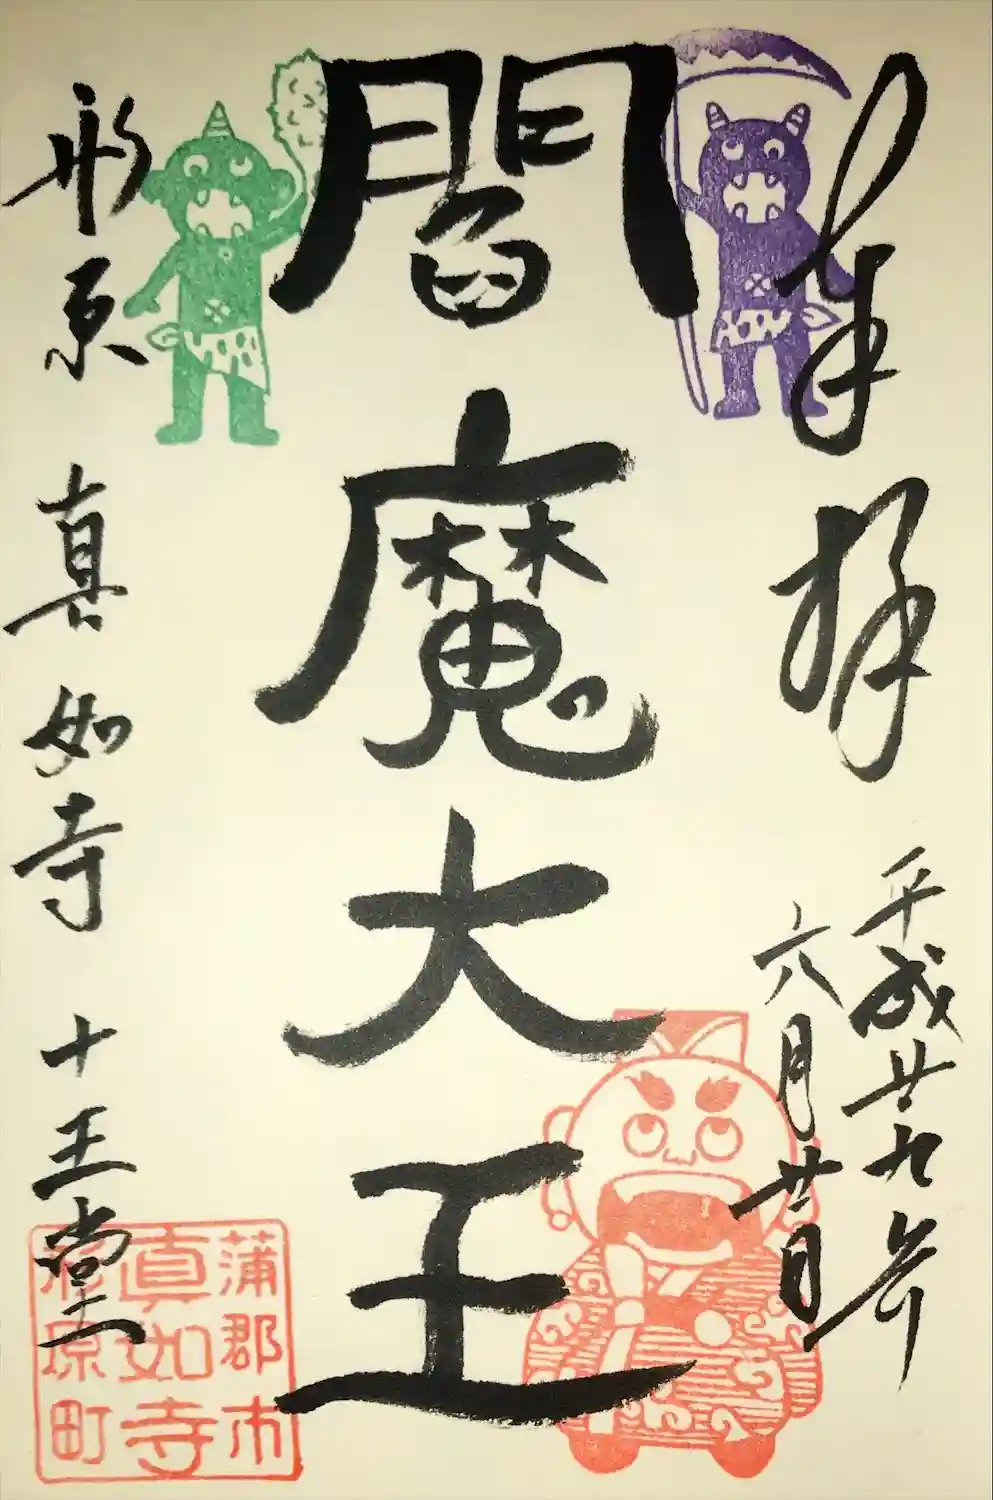 奉拝
平成廿九年
六月廿日
閻魔大王
形原 真如寺 十王堂
蒲郡市
真如寺
形原町